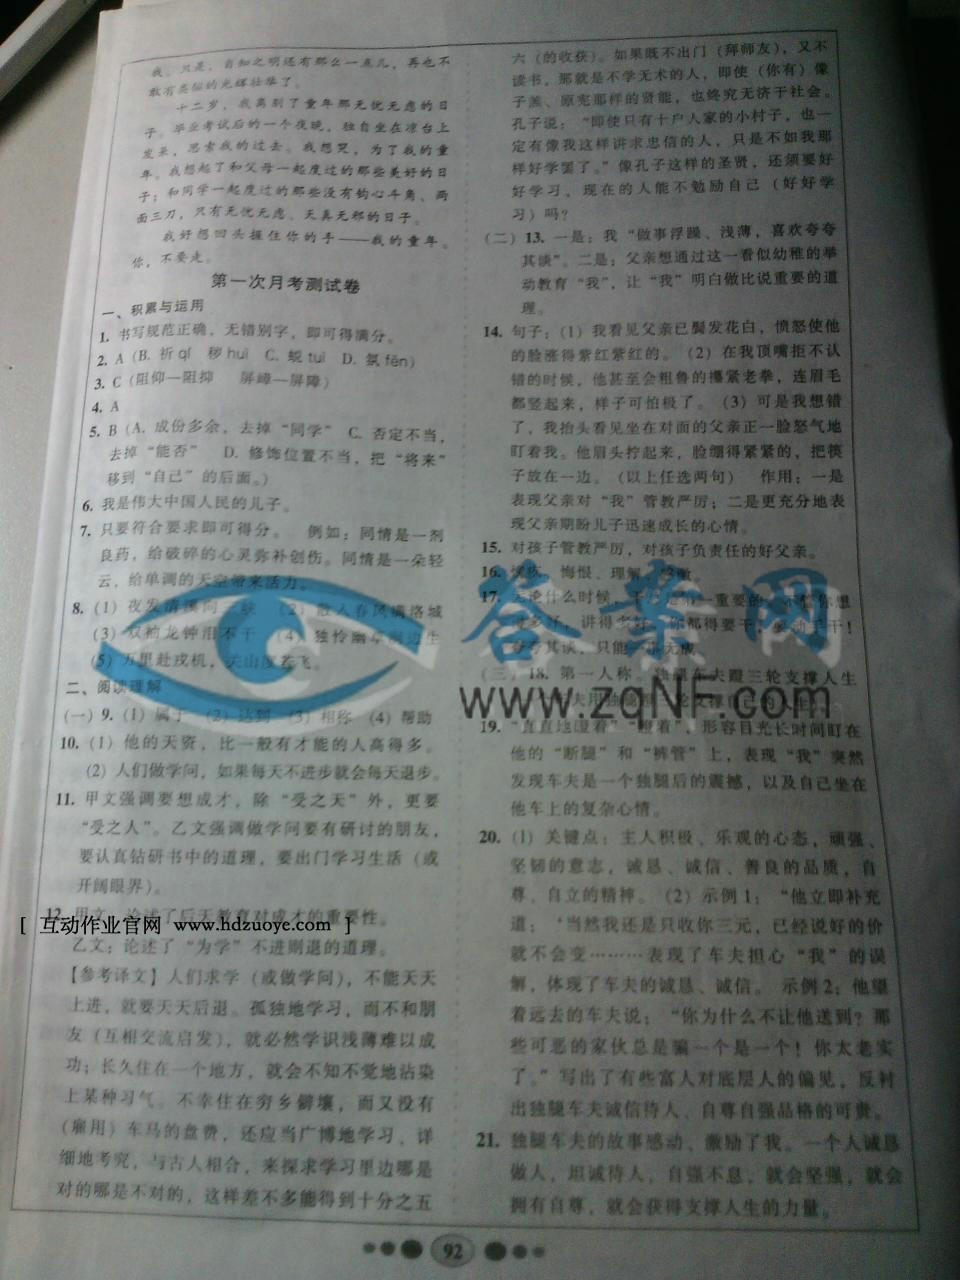 我。只是，自知之明还有那么一点儿，再也不
敢有类似的光辉壮举了。
十二岁，我离别了童年那无忧无虑的日
子。毕业考试后的一个夜晚，独自坐在凉台上
发呆，思索我的过去。我想哭，为了我的童
年。我想起了和父母一起度过的那些美好的日
子；和同学一起度过的那些没有钩心斗角、两
面三刀，只有无忧无虑、天真无邪的日子。
我好想回头握住你的手——我的童年。
你，不要走。
第一次月考测试卷
一、积累与运用
1. 书写规范正确，无错别字，即可得满分。
2. A (B. 祈qí 秽huì C. 蜕tuì D. 氛fēn)
3. C (阻仰—阻抑 屏嶂—屏障)
4. A
5. B (A. 成份多余，去掉“同学” C. 否定不当，
去掉“能否” D. 修饰位置不当，把“将来”
移到“自己”的后面。)
6. 我是伟大中国人民的儿子。
7. 只要符合要求即可得分。 例如：同情是一剂
良药，给破碎的心灵弥补创伤。同情是一朵轻
云，给单调的天空带来活力。
8. (1) 夜发清溪向三峡 (2) 散入春风满洛城
(3) 双袖龙钟泪不干 (4) 独怜幽草涧边生
(5) 万里赴戎机，关山度若飞。
二、阅读理解
(一) 9. (1) 属于 (2) 达到 (3) 相称 (4) 帮助
10. (1) 他的天资，比一般有才能的人高得多。
(2) 人们做学问，如果每天不进步就会每天退步。
11. 甲文强调要想成才，除“受之天”外，更要
“受之人”。乙文强调做学问要有研讨的朋友，
要认真钻研书中的道理，要出门学习生活（或
开阔眼界）。
12. 甲文：论述了后天教育对成才的重要性。
[ 互动作业官网 www.hdzuoye.com ]
乙文：论述了“为学”不进则退的道理。
【参考译文】人们求学（或做学问），不能天天
上进，就要天天后退。孤独地学习，而不和朋
友（互相交流启发），就必然学识浅薄难以成
功；长久住在一个地方，就会不知不觉地沾染
上某种习气。不幸住在穷乡僻壤，而又没有
（雇用）车马的盘费，还应当广博地学习、详
细地考究，与古人相合，来探求学习里边哪是
对的哪是不对的，这样差不多能得到十分之五
六（的收获）。如果既不出门（拜师友），又不
读书，那就是不学无术的人，即使（你有）像
子羔、原宪那样的贤能，也终究无济于社会。
孔子说：“即使只有十户人家的小村子，也一
定有像我这样讲求忠信的人，只是不如我那
样好学罢了。”像孔子这样的圣贤，还须要好
好学习，现在的人能不勉励自己（好好学
习）吗？
(二) 13. 一是：我“做事浮躁、浅薄，喜欢夸夸
其谈”。二是：父亲想通过这一看似幼稚的举
动教育“我”，让“我”明白做比说重要的道
理。
14. 句子：(1) 我看见父亲已鬓发花白，愤怒使他
的脸涨得紫红紫红的。 (2) 在我顶嘴拒不认
错的时候，他甚至会粗鲁的攥紧老拳，连眉毛
都竖起来，样子可怕极了。 (3) 可是我想错
了，我抬头看见坐在对面的父亲正一脸怒气地
盯着我。他眉头拧起来，脸绷得紧紧的，把筷
子放在一边。（以上任选两句） 作用：一是
表现父亲对“我”管教严厉；二是更充分地表
现父亲期盼儿子迅速成长的心情。
15. 对孩子管教严厉，对孩子负责任的好父亲。
16. 悔恨、理解
17. 无论什么时候，干总是第一重要的，不管你想
得多好，讲得多好，你都得要干！
夸夸其谈，只能一事无成。
(三) 18. 第一人称。独腿车夫蹬三轮支撑人生
www.zqNF.com
答案网
19. “直直地瞪着”“瞪着”，形容目光长时间盯在
他的“断腿”和“裤管”上，表现“我”突然
发现车夫是一个独腿后的震撼，以及自己坐在
他车上的复杂心情。
20. (1) 关键点：主人积极、乐观的心态，顽强、
坚韧的意志，诚恳、诚信、善良的品质，自
尊、自立的精神。 (2) 示例1：“他立即补充
道：‘当然我还是只收你三元，已经说好的价
就不会变………表现了车夫担心“我”的误
解，体现了车夫的诚恳、诚信。 示例2：他望
着远去的车夫说：“你为什么不让他送到？那
些可恶的家伙总是骗一个是一个！你太老实
了。”写出了有些富人对底层人的偏见，反衬
出独腿车夫诚信待人、自尊自强品格的可贵。
21. 独腿车夫的故事感动、激励了我。一个人诚恳
做人，坦诚待人，自强不息，就会坚强，就会
拥有自尊，就会获得支撑人生的力量。
92